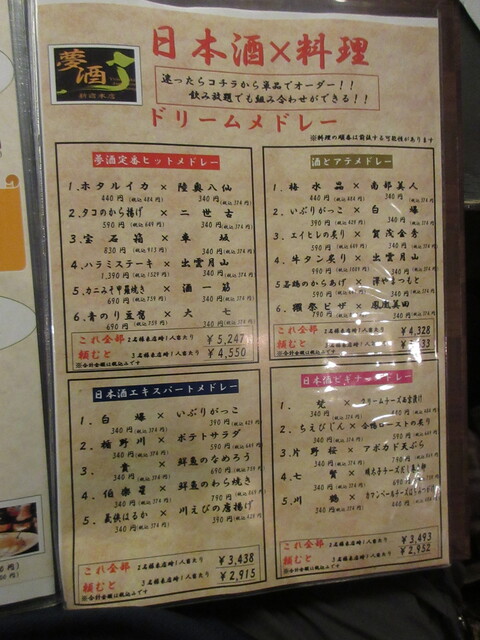 夢酒
新宿本店
日本酒×料理
迷ったらコチラから単品でオーダー！！
飲み放題でも組み合わせができる！！
ドリームメドレー
※料理の順番は前後する可能性があります
夢酒定番ヒットメドレー
1.ホタルイカ × 陸奥八仙
440円(税込484円) 340円(税込374円)
2.タコのから揚げ × 二世古
590円 340円(税込374円)
3.宝石箱 × 車坂
830円(税込913円) 340円(税込374円)
4.ハラミステーキ × 出雲月山
1,390円 340円(税込374円)
5.カニみそ甲羅焼き × 酒一筋
690円(税込759円) 340円(税込374円)
6.青のり豆腐 × 大七
690円(税込759円) 340円(税込374円)
これ全部 2名様来店時1人当たり ￥5,247
頼むと 3名様来店時1人当たり ￥4,550
※合計金額は税込みです
酒とアテメドレー
1.梅水晶 × 南部美人
440円(税込484円) 340円(税込374円)
2.いぶりがっこ × 白爆
390円(税込429円) 340円(税込374円)
3.エイヒレの炙り × 賀茂金秀
590円 340円(税込374円)
4.牛タン炙り × 出雲月山
990円 340円(税込374円)
5.若鶏のからあげ × 澤やまつもと
590円 340円(税込374円)
6.獺祭ピザ × 鳳凰美田
790円 340円(税込374円)
これ全部 2名様来店時1人当たり ￥4,328
頼むと 3名様来店時1人当たり
※合計金額は税込みです
日本酒エキスパートメドレー
1.白爆 × いぶりがっこ
340円(税込374円) 390円
2.楯野川 × ポテトサラダ
340円(税込374円) 590円
3.貴 × 鮮魚のなめろう
340円(税込374円) 690円
4.伯楽星 × 鮮魚のわら焼き
340円(税込374円) 790円
5.義侠はるか × 川えびの唐揚げ
340円(税込374円) 590円
これ全部 2名様来店時1人当たり ￥3,438
頼むと 3名様来店時1人当たり ￥2,915
※合計金額は税込みです
日本酒ビギナーメドレー
1.梵 × クリームチーズ
340円(税込374円) 440円
2.ちえびじん × 合鴨ローストの炙り
340円(税込374円) 590円
3.片野桜 × アボカド天ぷら
340円(税込374円) 690円
4.七賢 × 明太子チーズだし巻き卵
340円(税込374円) 790円
5.川鶴 × カマンベールチーズ
340円(税込374円)
これ全部 2名様来店時1人当たり ￥3,493
頼むと 3名様来店時1人当たり ￥2,952
※合計金額は税込みです